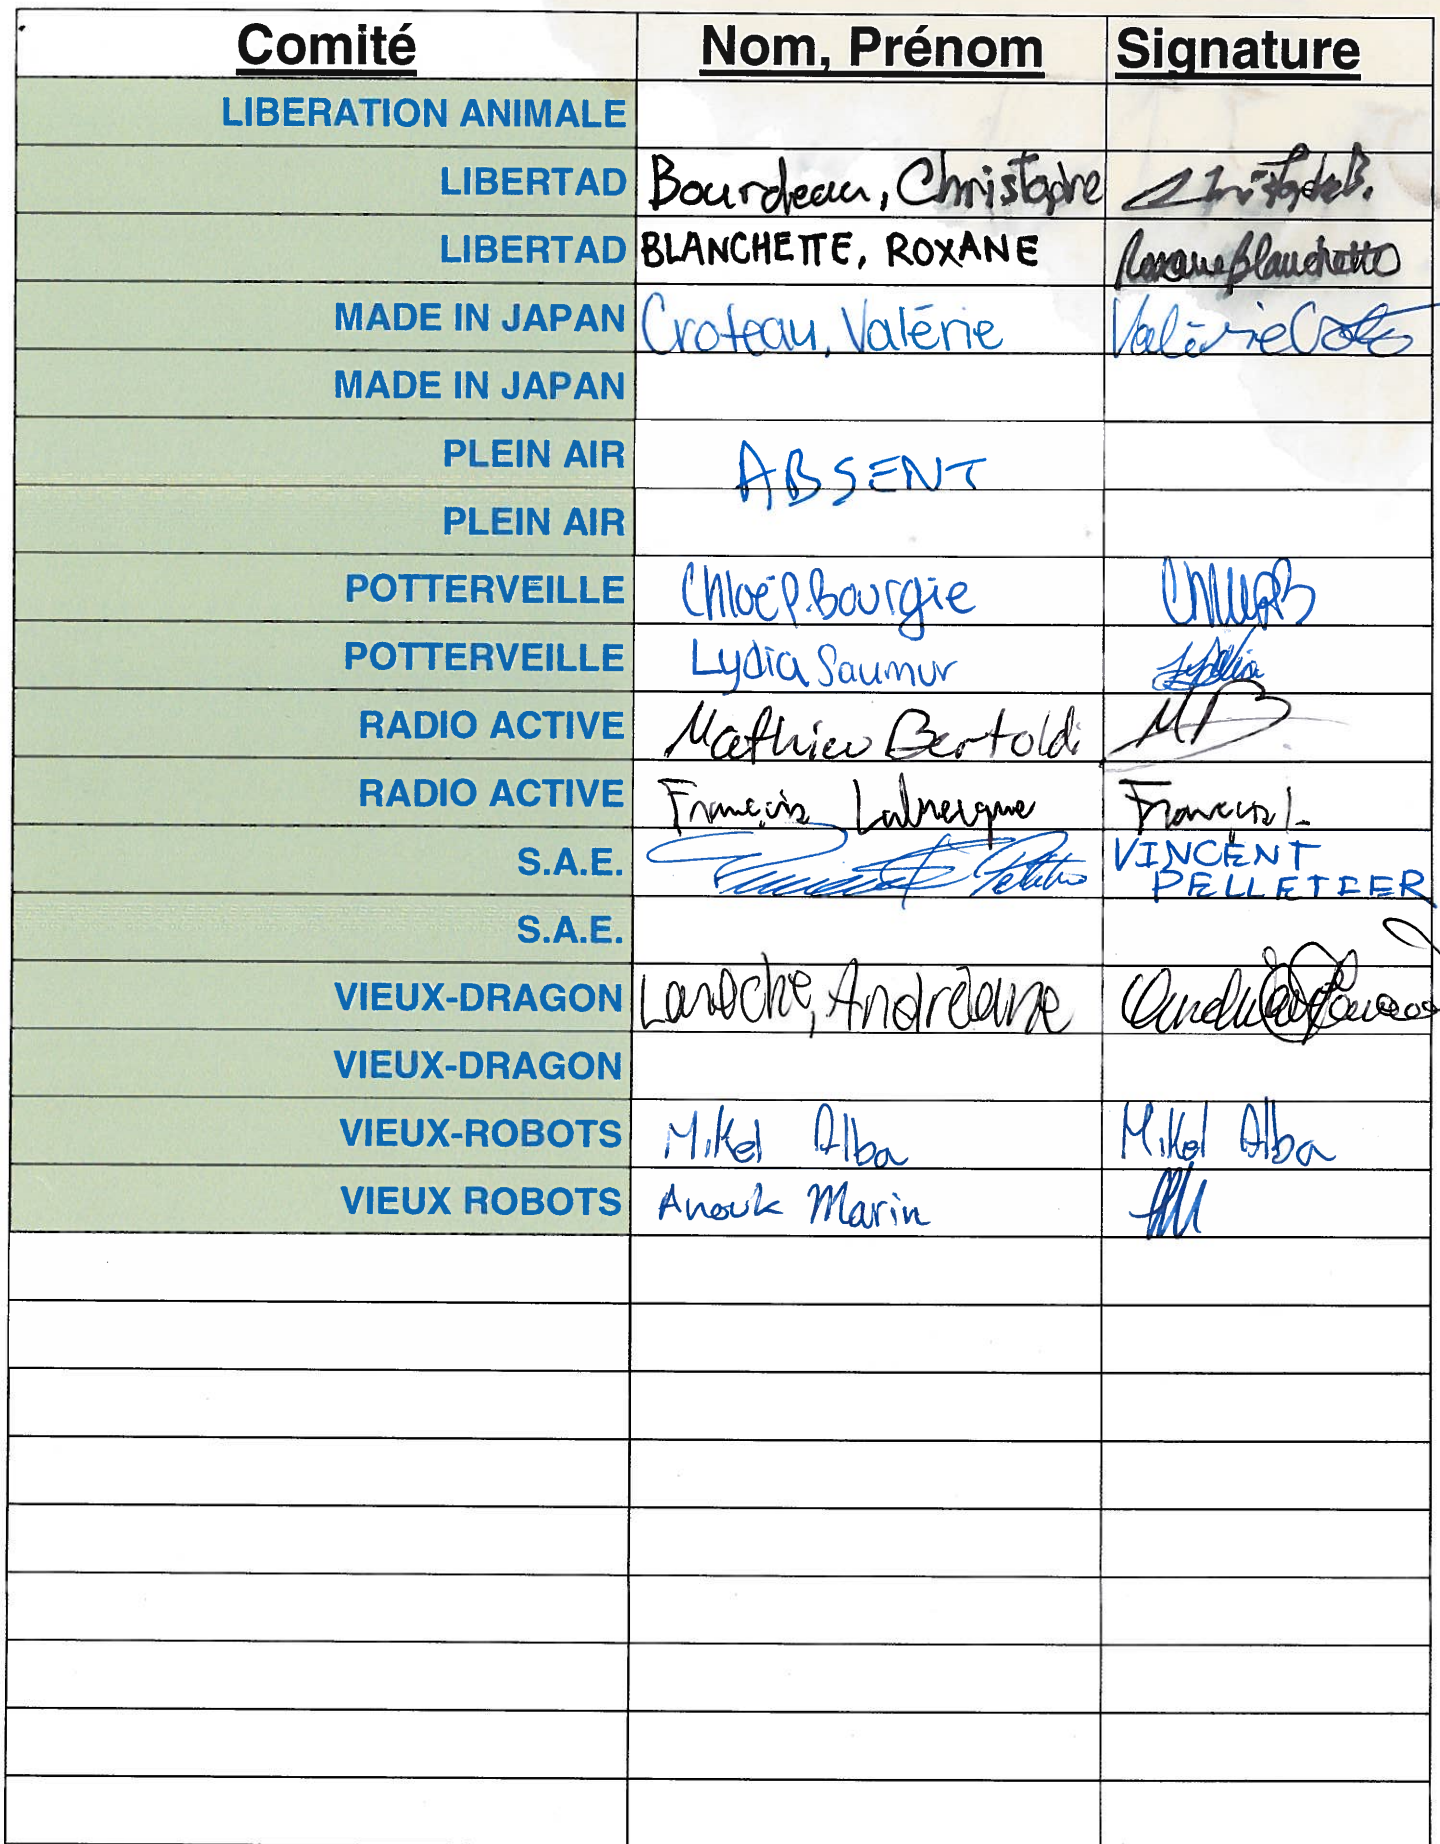 Comité Nom, Prénom Signature
LIBERATION ANIMALE
LIBERTAD Bourdeau, Christophe ChristopheB.
LIBERTAD BLANCHETTE, ROXANE Roxane Blanchette
MADE IN JAPAN Croteau, Valérie Valérie
MADE IN JAPAN
PLEIN AIR ABSENT
PLEIN AIR
POTTERVEILLE Chloé P. Bourgie
POTTERVEILLE Lydia Saumur Lydia
RADIO ACTIVE Mathieu Bertoldi MB
RADIO ACTIVE François Labrecque François L.
S.A.E. VINCENT
PELLETIER
S.A.E.
VIEUX-DRAGON Laroche, Andréane
VIEUX-DRAGON
VIEUX-ROBOTS Mikel Alba Mikel Alba
VIEUX ROBOTS Anouk Marin